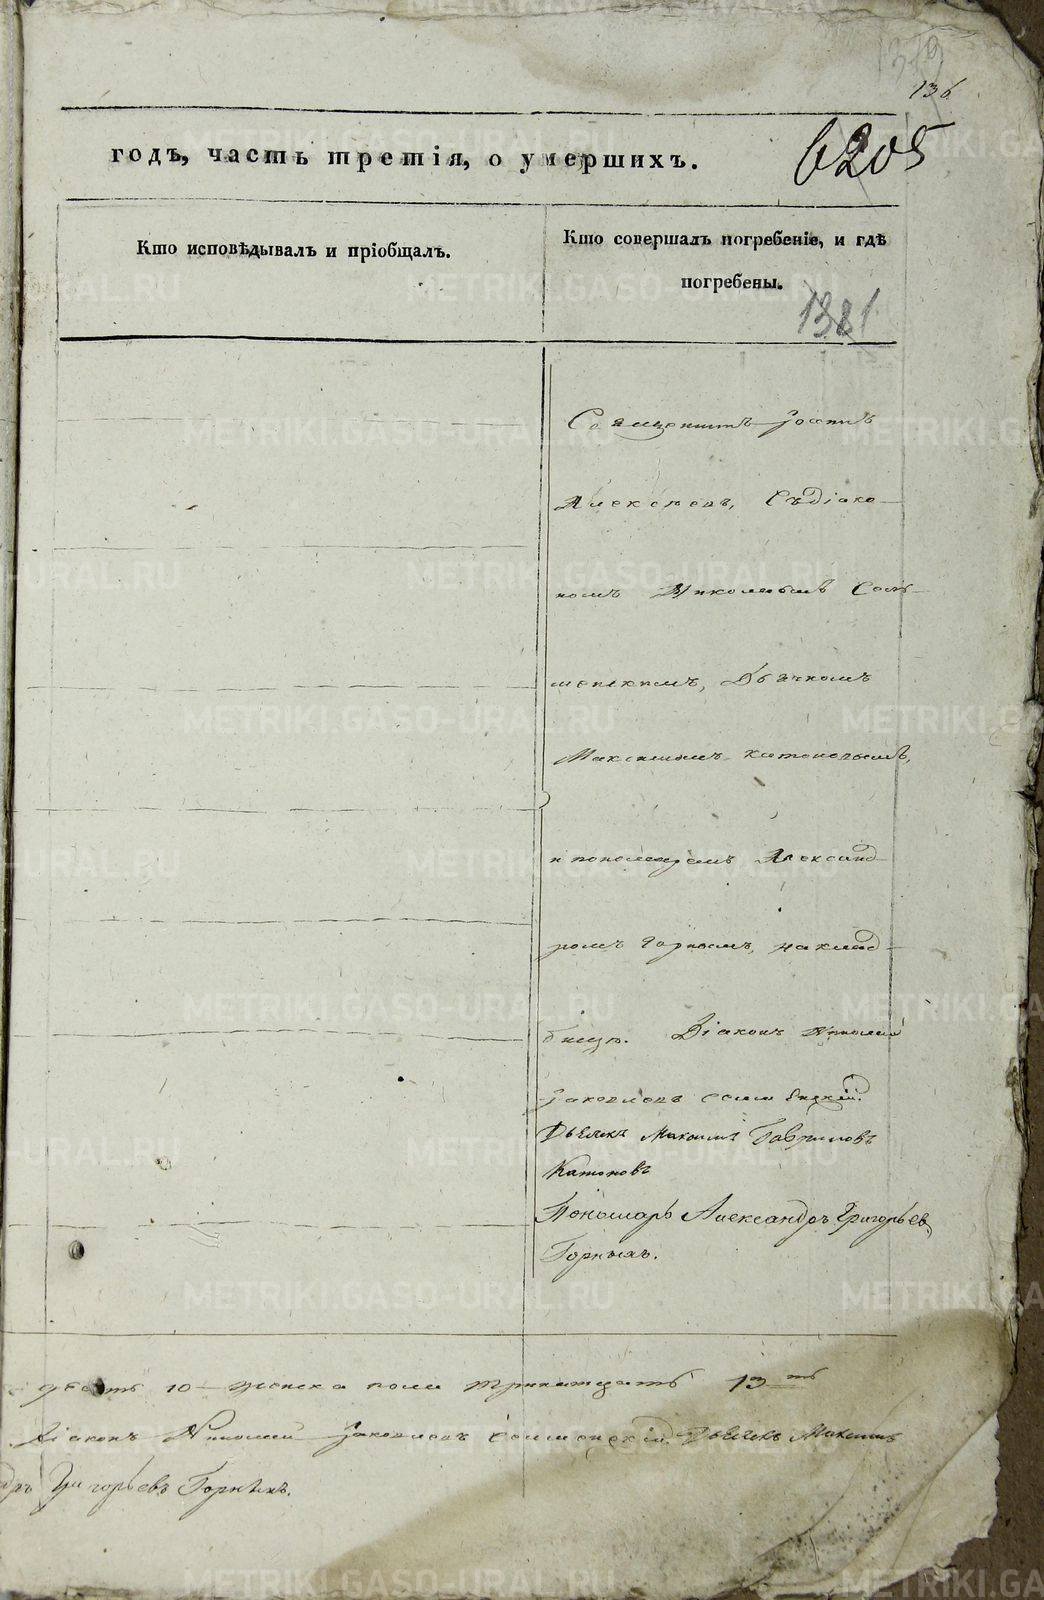 319
136
годъ, часть третія, о умершихъ.
6205
Кто исповѣдывалъ и пріобщалъ.
Кто совершалъ погребеніе, и гдѣ
погребены.
1381
Священникъ Іосифъ
Алексѣевъ, Съ діако-
номъ Николаемъ
Дьячкомъ
Максимомъ Катоновымъ,
и пономаремъ Александ-
ромъ Горныхъ, на клад-
бищѣ. Діаконъ Николай
Іаковлевъ
Дьячекъ Максимъ Гавриловъ
Катоновъ
Пономарь Александръ Григорьевъ
Горныхъ.
10 — женска пола тринатцать 13-ть
Діаконъ Николай Іаковлевъ Дьячекъ Максимъ
дръ Григорьевъ Горныхъ.
METRIKI.GASO-URAL.RU